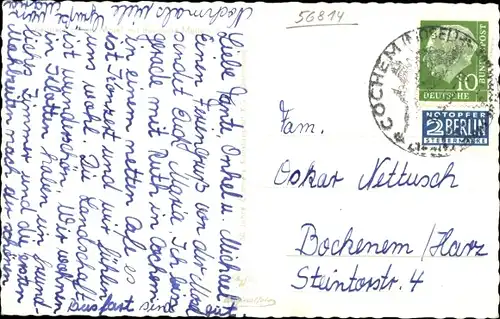 56814
COCHEM (MOSEL)
10
DEUTSCHE BUNDESPOST
NOTOPFER
2 BERLIN
STEUERMARKE
Fam.
Oskar Nettusch
Bochenem/Harz
Steintorstr. 4
Nochmals viele
Grüße
Liebe Tante, Onkel u. Michael
Einen Feriengruß von der Mosel
sendet Euch Maria. Ich bin
gerade mit Ruth in Cochem
in einem netten Café es
ist Konzert und wir fühlen
uns wohl. Die Landschaft
ist wunderschön. Wir wohnen
in haben ein freund-
liches Zimmer und die ersten
sind